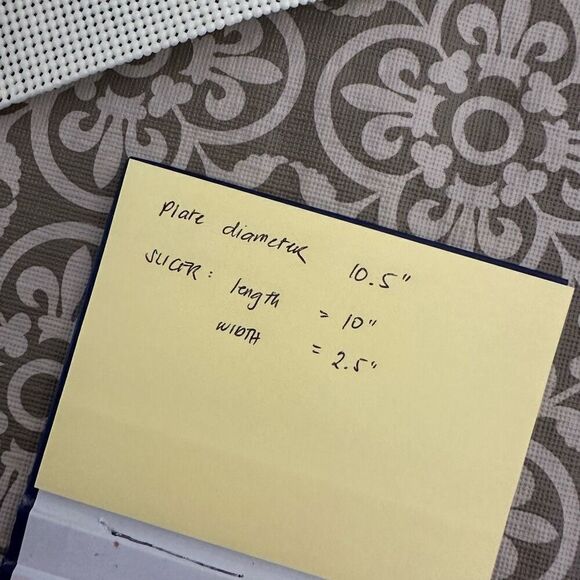 Plate diameter 10.5"
SLICER: length = 10"
WIDTH = 2.5"